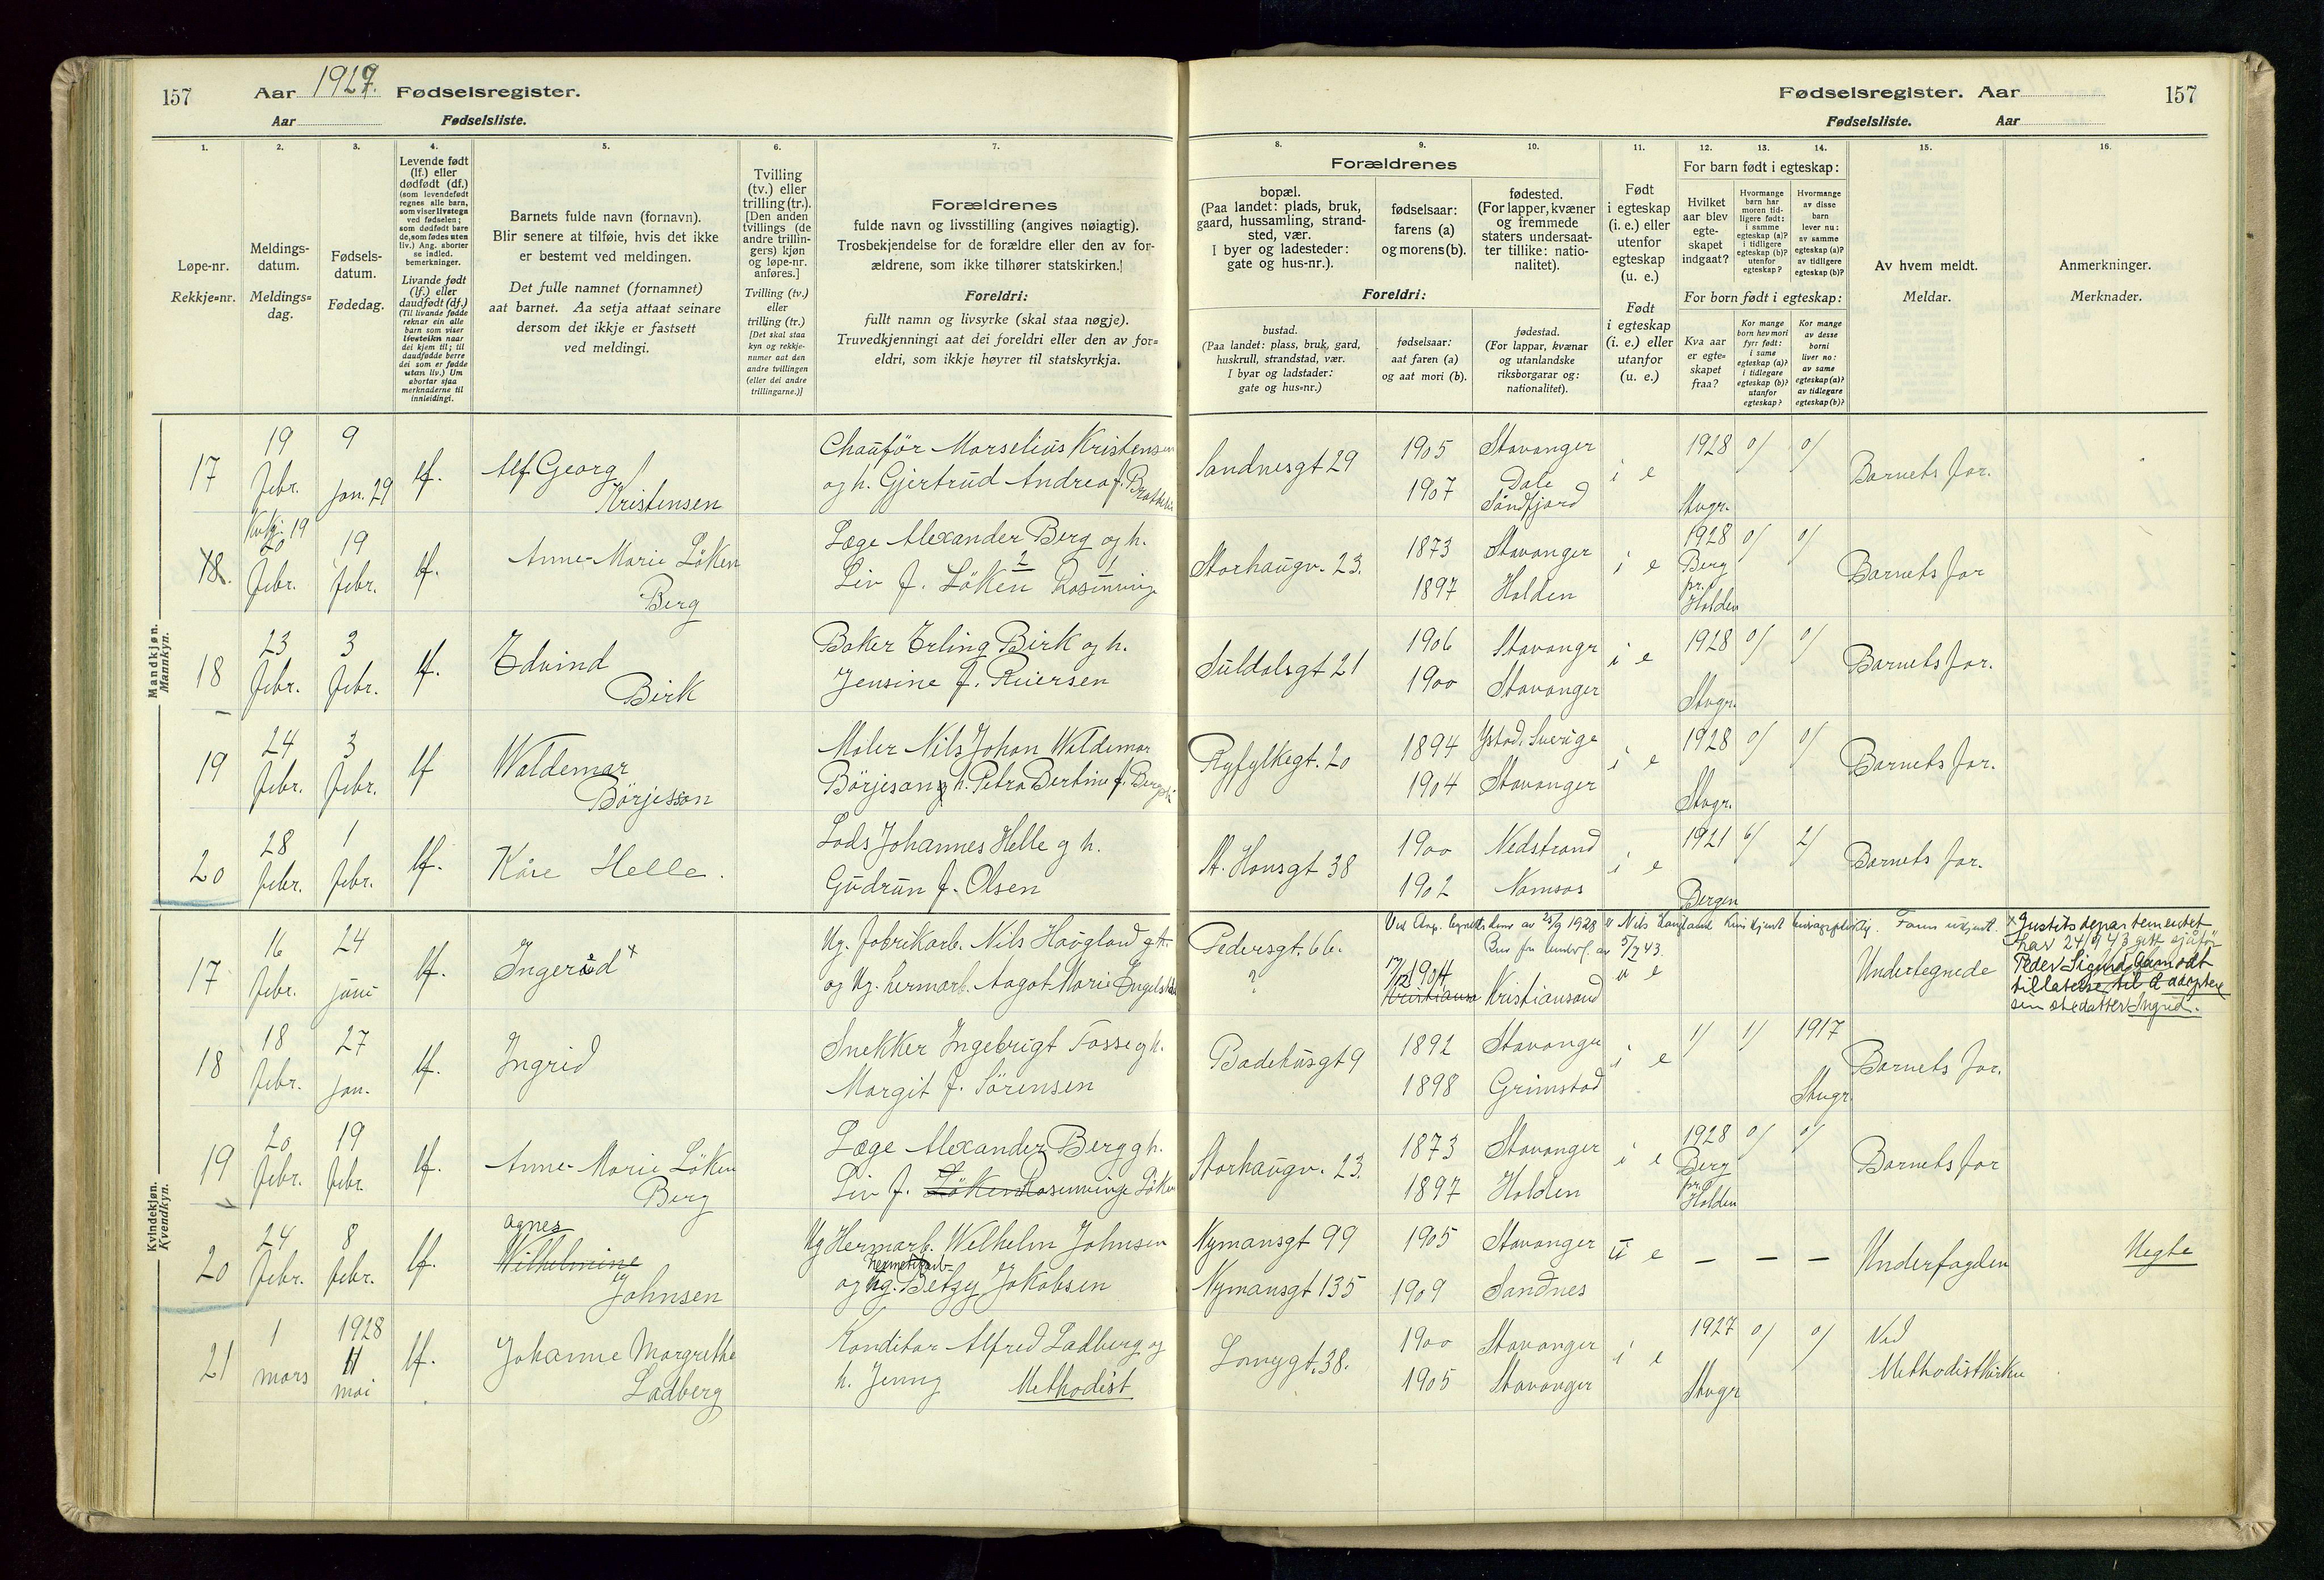 157 Aar 1929. Fødselsregister.
Aar Fødselsliste.
Fødselsregister. Aar 157
Fødselsliste. Aar
1.
Løpe-nr.
Rekkje=nr.
2.
Meldings-
datum.
Meldings=
dag.
3.
Fødsels-
datum.
Fødedag.
4.
Levende født
(lf.) eller
dødfødt (df.)
(som levendefødt
regnes alle barn,
som viser livstegn
ved fødselen;
som dødfødt bare
de, som fødes uten
liv.) Ang. aborter
se indled.
bemerkninger.
Livande født
(lf.) eller
daudfødt (df.)
(Til livande fødde
reknar ein alle
barn som viser
livsteikn naar
dei kjem til; til
daudfødde berre
dei som er fødde
utan liv.) Um
abortar sjaa
merknaderne til
innleidingi.
5.
Barnets fulde navn (fornavn).
Blir senere at tilføie, hvis det ikke
er bestemt ved meldingen.
Det fulle namnet (fornamnet)
aat barnet. Aa setja attaat seinare
dersom det ikkje er fastsett
ved meldingi.
6.
Tvilling
(tv.) eller
trilling (tr.).
[Den anden
tvillings (de
andre trillin-
gers) kjøn
og løpe-nr.
anføres.]
Tvilling (tv.)
eller
trilling (tr.)
[Det skal staa
kyn og rekkje-
numer aat den
andre tvillingen
(eller dei andre
trillingarne.)]
7.
Forældrenes
fulde navn og livsstilling (angives nøiagtig).
Trosbekjendelse for de forældre eller den av for-
ældrene, som ikke tilhører statskirken.]
Foreldri:
fullt namn og livsyrke (skal staa nøgje).
Truvedkjenningi aat dei foreldri eller den av for=
eldri, som ikkje høyrer til statskyrkja.
8. 9. 10.
Forældrenes
bopæl.
(Paa landet: plads, bruk,
gaard, hussamling, strand-
sted, vær.
I byer og ladesteder:
gate og hus-nr.).
fødselsaar:
farens (a)
og morens (b).
fødested.
(For lapper, kvæner
og fremmede
staters undersaat-
ter tillike: natio-
nalitet).
Foreldri:
bustad.
(Paa landet: plass, bruk, gard,
huskrull, strandstad, vær.
I byar og ladstader:
gate og hus=nr.)
fødselsaar:
aat faren (a)
og aat mori (b).
fødestad.
(For lappar, kvænar
og utanlandske
riksborgarar og:
nationalitet).
11.
Født
i egteskap
(i. e.) eller
utenfor
egteskap
(u. e.)
Født
i egteskap
(i. e.) eller
utanfor
(u. e.)
12. 13. 14.
For barn født i egteskap:
Hvilket
aar blev
egte-
skapet
indgaat?
Hvormange
barn har
moren tid-
ligere født:
i samme
egteskap (a)?
i tidligere
egteskap (b)?
utenfor
egteskap?
Hvormange
av disse
barn
lever nu:
av samme
egteskap (a)?
av tidligere
egteskap (b)?
For born født i egteskap:
Kva aar
er egte=
skapet
fraa?
Kor mange
born hev mori
fyrr født:
i same
egteskap (a)?
i tidlegare
egteskap (b)?
utanfor
egteskap?
Kor mange
av desse
borni
liver no:
av same
egteskap (a)?
av tidlegare
egteskap (b)?
15.
Av hvem meldt.
Meldar.
16.
Anmerkninger.
Merknader.
Mandkjøn.
Mannkyn.
17 19 Febr. 9 Jan. 29 lf. Alf Georg Kristensen
Chauför Marselius Kristensen
og h. Gjertrud Andrea f.
Sandnesgt 29 1905 1907 Stavanger Dale Söndfjord i e 1928 Stvgr. 0/ 0/ Barnets far.
18. Kvkj. 19 20 Febr. 19 Febr. lf. Anne-Marie Löken Berg
Læge Alexander Berg og h.
Liv f. Löken 2 Rosenvinge 1
Storhaugv. 23. 1873 1897 Stavanger Holden i e 1928 Berg pr. Holden 0/ 0/ Barnets far
18 23 Febr. 3 Febr. lf. Edvind Birk
Baker Erling Birk og h.
Jensine f. Riersen
Suldalsgt 21 1906 1900 Stavangr Stavanger i e 1928 Stvgr. 0/ 0/ Barnets far.
19 24 Febr. 3 Febr. lf Waldemar Börjesson
Maler Nils Johan Waldemar
Börjeson og h. Petra Bertine f.
Ryfylkegt. 20 1894 1904 Ystad, Sverige Stavanger i e 1928 Stvgr. 0/ 0/ Barnets far.
20 28 Febr. 1 Febr. lf. Kåre Helle.
Lods Johannes Helle og h.
Gudrun f. Olsen
St. Hansgt 38 1900 1902 Nedstrand Namsos i e 1921 Bergen 6/ 2/ Barnets far.
Kvindekjøn.
Kvendkyn.
17 16 Febr. 24 juni lf. Ingerid x
Ug. fabrikarb. Nils Haugland
og Ug. hermarb. Aagot Marie
Pedersgt. 66. ?
av 25/9 1928 Nils Haugland bidragspliktig. Farm ukjent.
5/7 43
17/12 1904 Kristiansand Kristiansand u e Undertegnede
x Justitsdepartementet
har 24/9 43 gitt sjåfør
Peder Sigurd
tillatelse til å adoptere
sin stedatter Ingrid.
18 18 Febr. 27 Jan. lf. Ingrid
Snekker Ingebrigt Fosse og h.
Margit f. Sörensen
Badehusgt 9 1892 1898 Stavanger Grimstad i e 1/ 1/ 1917 Stvgr. Barnets far.
19 20 Febr. 19 Febr. lf. Anne-Marie Löken Berg
Læge Alexander Berg og h.
Liv f. Löken Rosenvinge Löken
Storhaugv. 23. 1873 1897 Stavanger Holden i e 1928 Berg pr. Holden 0/ 0/ Barnets far
20 24 Febr. 8 Febr. lf. Agnes Wilhelmine Johnsen
Ug Hermarb. Wilhelm Johnsen
og Ug. hermetikarb. Betzy Jakobsen
Nymansgt 99 Nymansgt 135 1905 1909 Stavanger Sandnes u e — — — Underfogden Uegte
21 1 mars 1928 11 mai lf. Johanne Margrethe Ladberg
Konditor Alfred Ladberg og
h. Jenny Methodist
Langgt. 38. 1900 1905 Stavanger Stavanger i e 1927 Stvgr 0/ 0/ Ved Methodistkirken